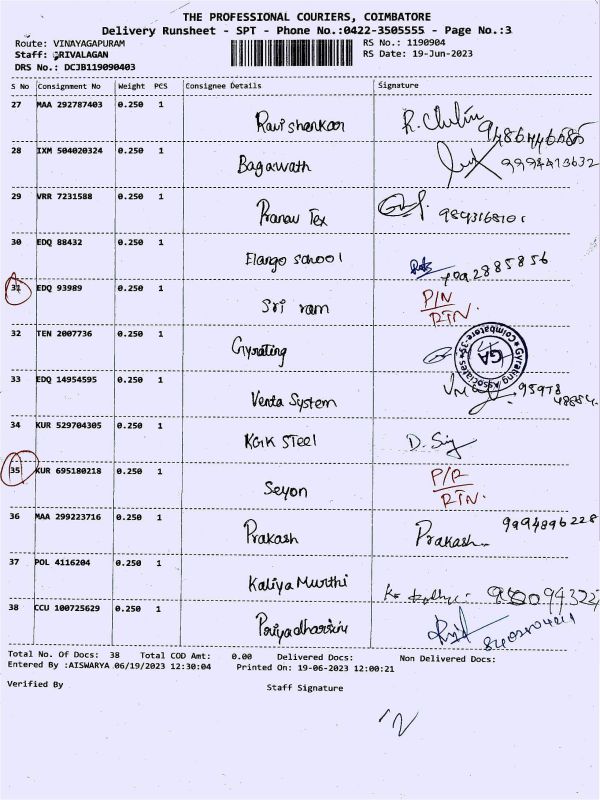 THE PROFESSIONAL COURIERS, COIMBATORE
Delivery Runsheet - SPT - Phone No.:0422-3505555 - Page No.:3
Route: VINAYAGAPURAM RS No.: 1190904
Staff: SRIVALAGAN RS Date: 19-Jun-2023
DRS No.: DCJB119090403
S No Consignment No Weight PCS Consignee Details Signature
27 MAA 292787403 0.250 1
Ravishankar
28 IXM 504020324 0.250 1
Bagawath 9994413632
29 VRR 7231588 0.250 1
Pranav Tex 9893168101
30 EDQ 88432 0.250 1
Elango School
31 EDQ 93989 0.250 1 P/N
Sri ram RTN.
32 TEN 2007736 0.250 1
Gyrating GA Gyrating Associates Coimbatore-35
33 EDQ 14954595 0.250 1
Venta System
34 KUR 529704305 0.250 1
KGIK STEEL
35 KUR 695180218 0.250 1 P/R
Seyon RTN.
36 MAA 299223716 0.250 1 9994896228
Prakash Prakash
37 POL 4116204 0.250 1
Kaliya Murthi
38 CCU 100725629 0.250 1
Priyadharsini
Total No. Of Docs: 38 Total COD Amt: 0.00 Delivered Docs: Non Delivered Docs:
Entered By :AISWARYA 06/19/2023 12:30:04 Printed On: 19-06-2023 12:00:21
Verified By Staff Signature